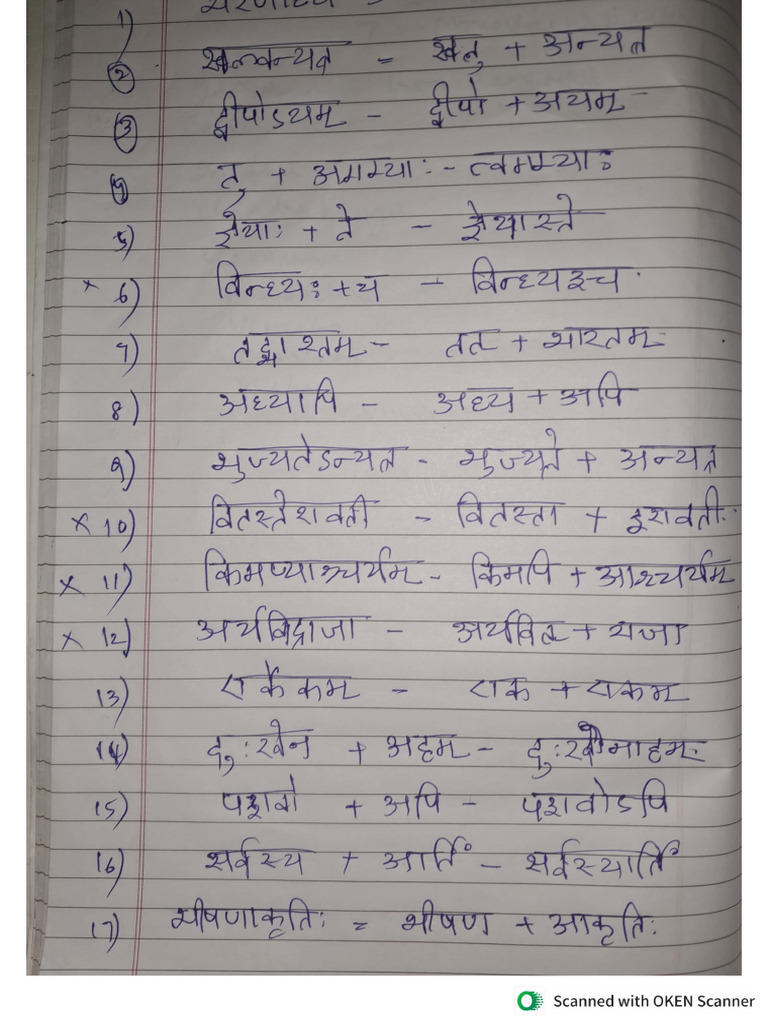 1)
2 खल्वन्यत्र = खलु + अन्यत्र
3 द्वीपोऽयम् - द्वीपो + अयम्
4 तु + अगम्याः - त्वगम्याः
5) ज्ञेयाः + ते - ज्ञेयास्ते
x 6) विन्ध्यः + च - विन्ध्यश्च
7) तद्भारतम् - तत् + भारतम्
8) अध्यापि - अध्य + अपि
9) भुज्यतेऽन्यत्र - भुज्यते + अन्यत्र
x 10) वितस्तेरावती - वितस्ता + इरावती
x 11) किमप्याश्चर्यम् - किमपि + आश्चर्यम्
x 12) अर्थविद्राजा - अर्थवित् + राजा
13) एकैकम - एक + एकम
14) दुःखेन + अहम - दुःखेनाहम
15) पशवो + अपि - पशवोऽपि
16) सर्वस्य + आर्तिं - सर्वस्यार्तिं
17) भीषणाकृतिः = भीषण + आकृतिः
Scanned with OKEN Scanner